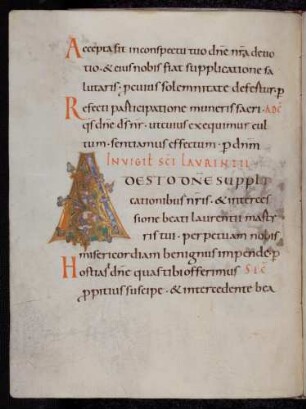 Accepta sit in conspectu tuo dñe nr̃a deuo
tio · & eius nobis fiat supplicatione sa
lutaris · p cuius solemnitate defertur · p
Refecti participatione muneris sacri · ADC̃
qs̃ dñe ds̃ nr̃ · ut cuius exequimur cul
tum · sentiamus effectum · p dñm
IN UIGIL̃ SC̃I LAURENTII
ADESTO DÑE SUPPLI
cationibus nr̃is · & interces
sione beati laurentii marty
ris tui · perpetuam nobis
misericordiam benignus impende · p
Hostias dñe quas tibi offerimus SEC̃
ppitius suscipe · & intercedente bea